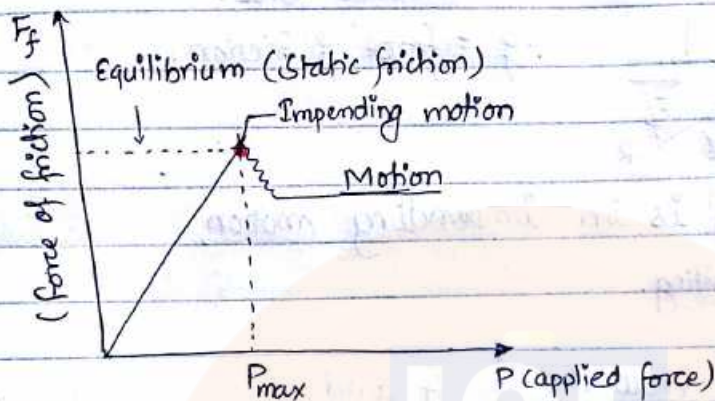 F_f
(force of friction)
Equilibrium (Static friction)
Impending motion
Motion
P_max
P (applied force)
is in impending motion